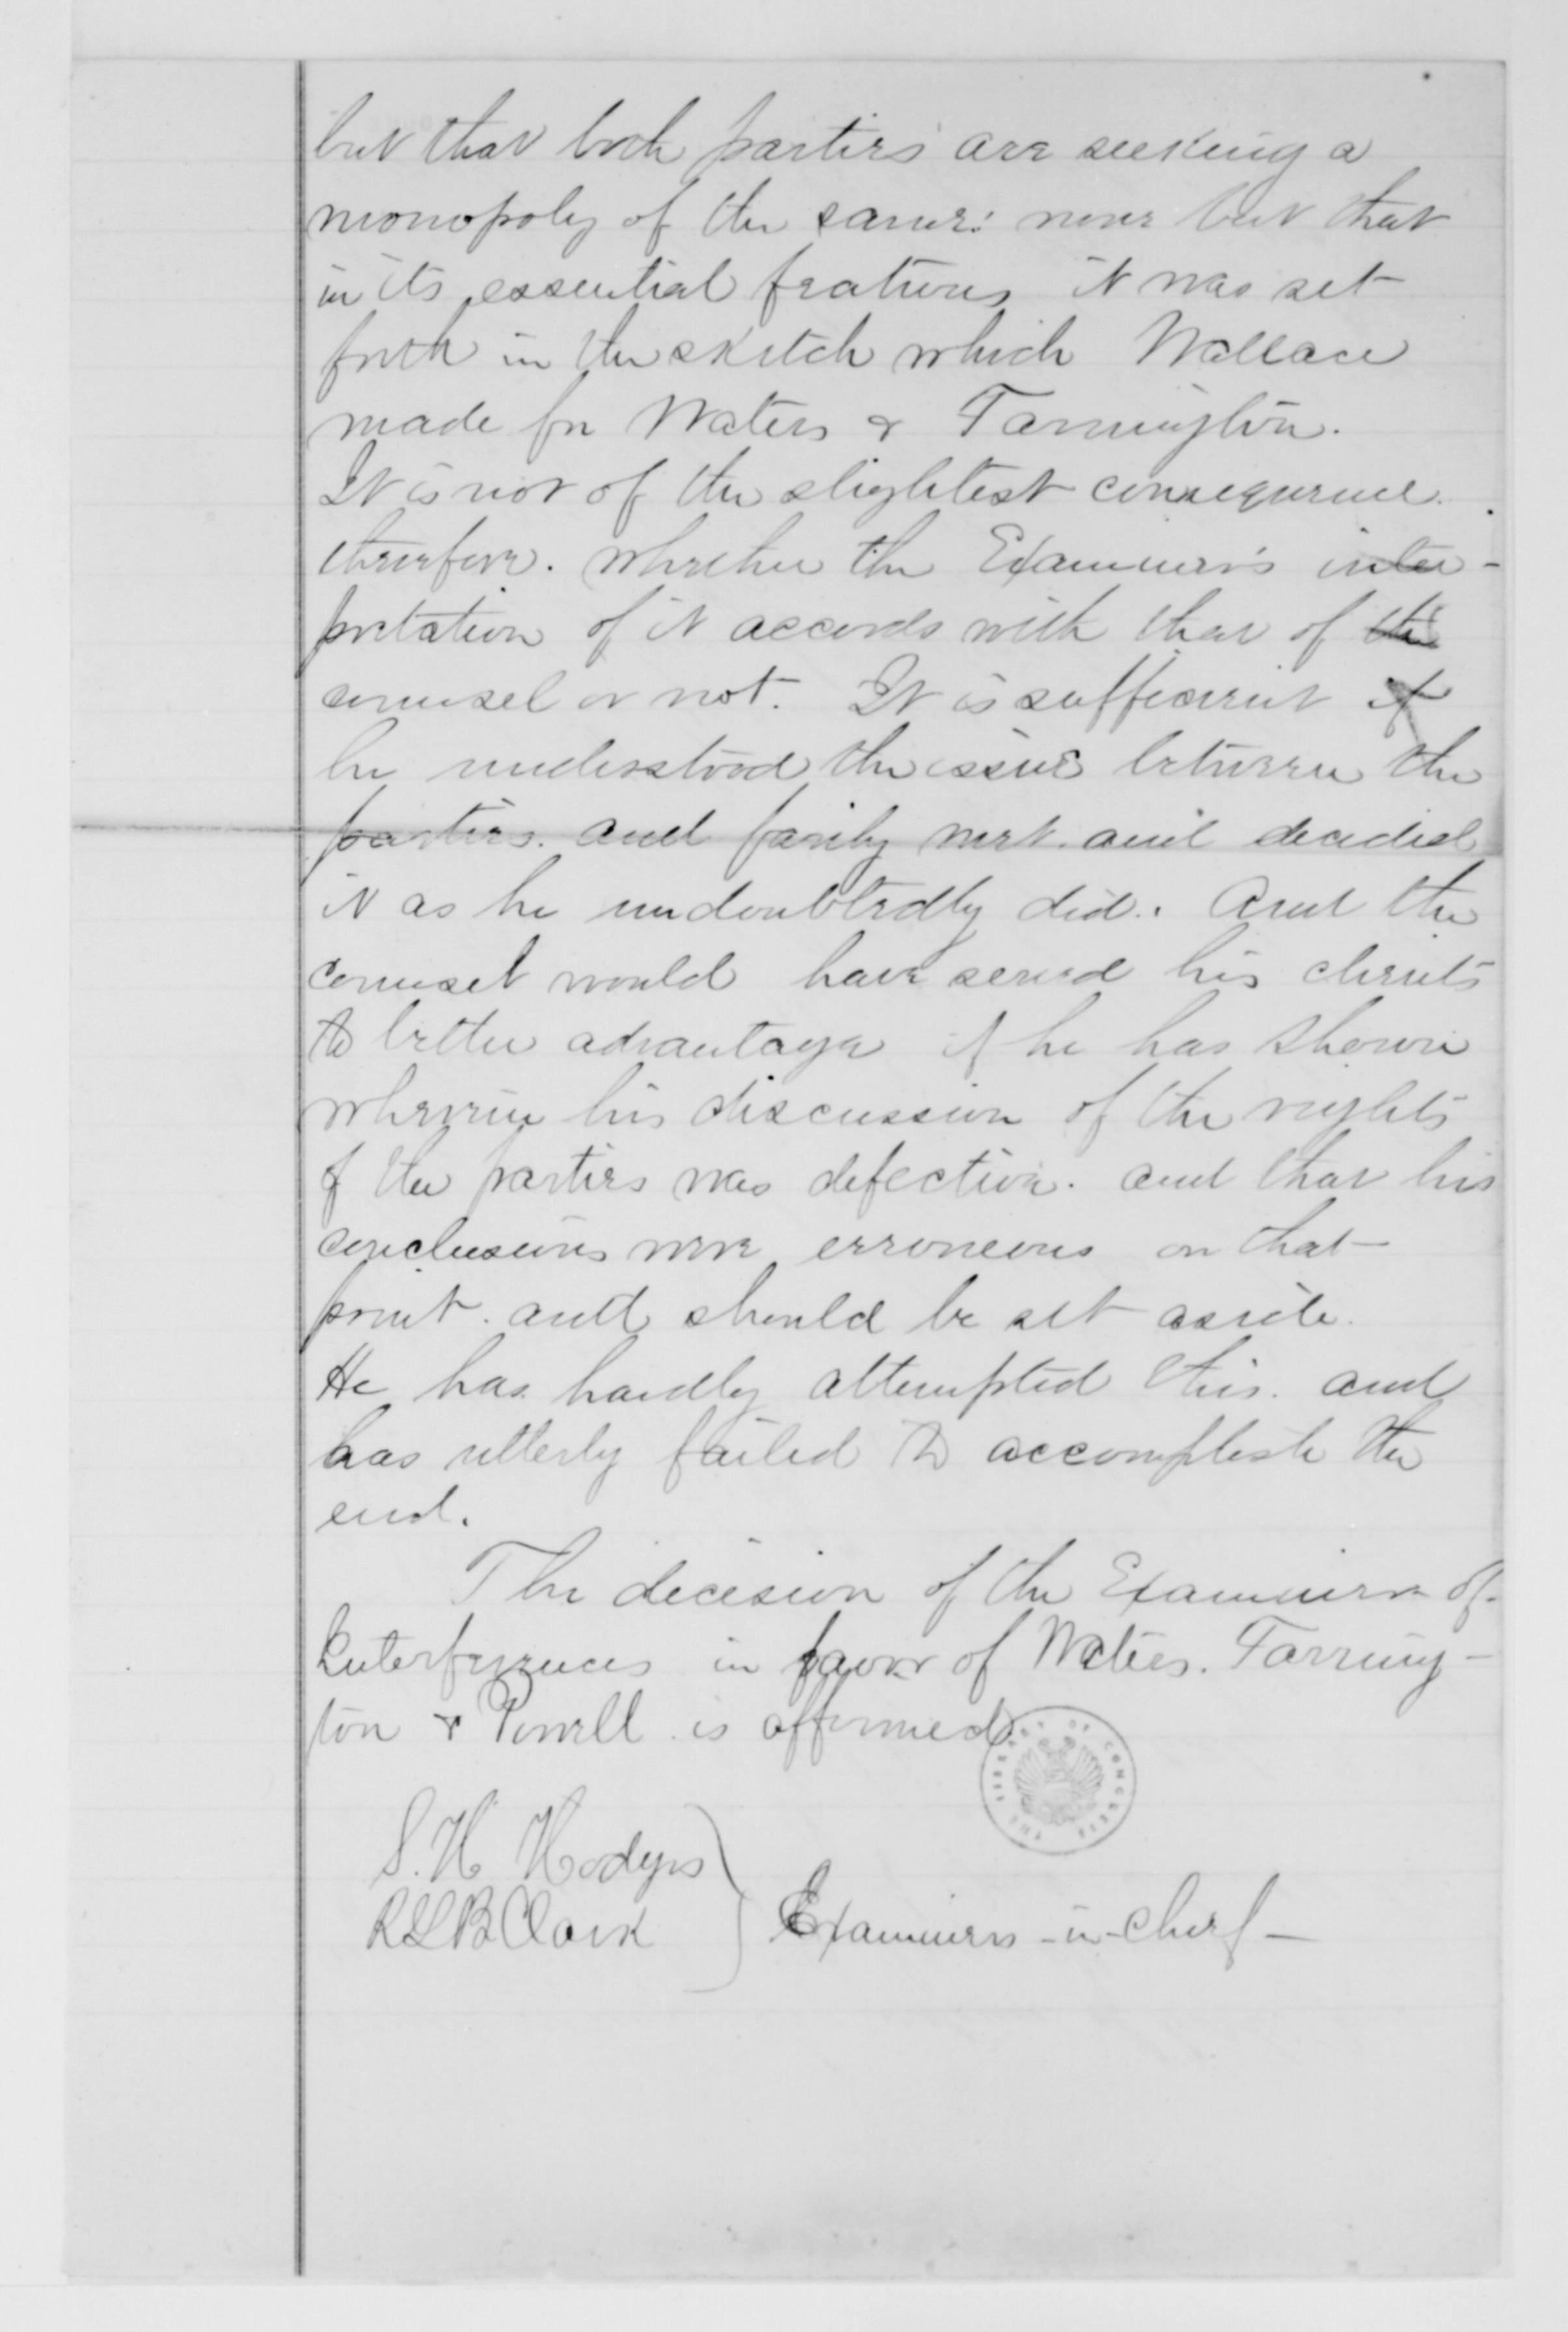 but that both parties are seeking a
monopoly of the same: nor but that
in its essential features it was set
forth in the sketch which Wallace
made for Waters & Farrington.
It is not of the slightest consequence.
therefore. whether the Examiner's inter-
pretation of it accords with that of the
counsel or not. It is sufficient if
he understood the issue between the
parties. and fairly met and decided
it as he undoubtedly did. And the
counsel would have served his clients
to better advantage if he has shown
wherein his discussion of the rights
of the parties was defective. and that his
conclusions were erroneous on that
point. and should be set aside.
He has hardly attempted this. and
has utterly failed to accomplish the
end.
The decision of the Examiner of
Interferences in favor of Waters. Farring-
ton & Powell is affirmed
THE LIBRARY OF CONGRESS
S. H. Hodges
R L B Clark } Examiners-in-chief